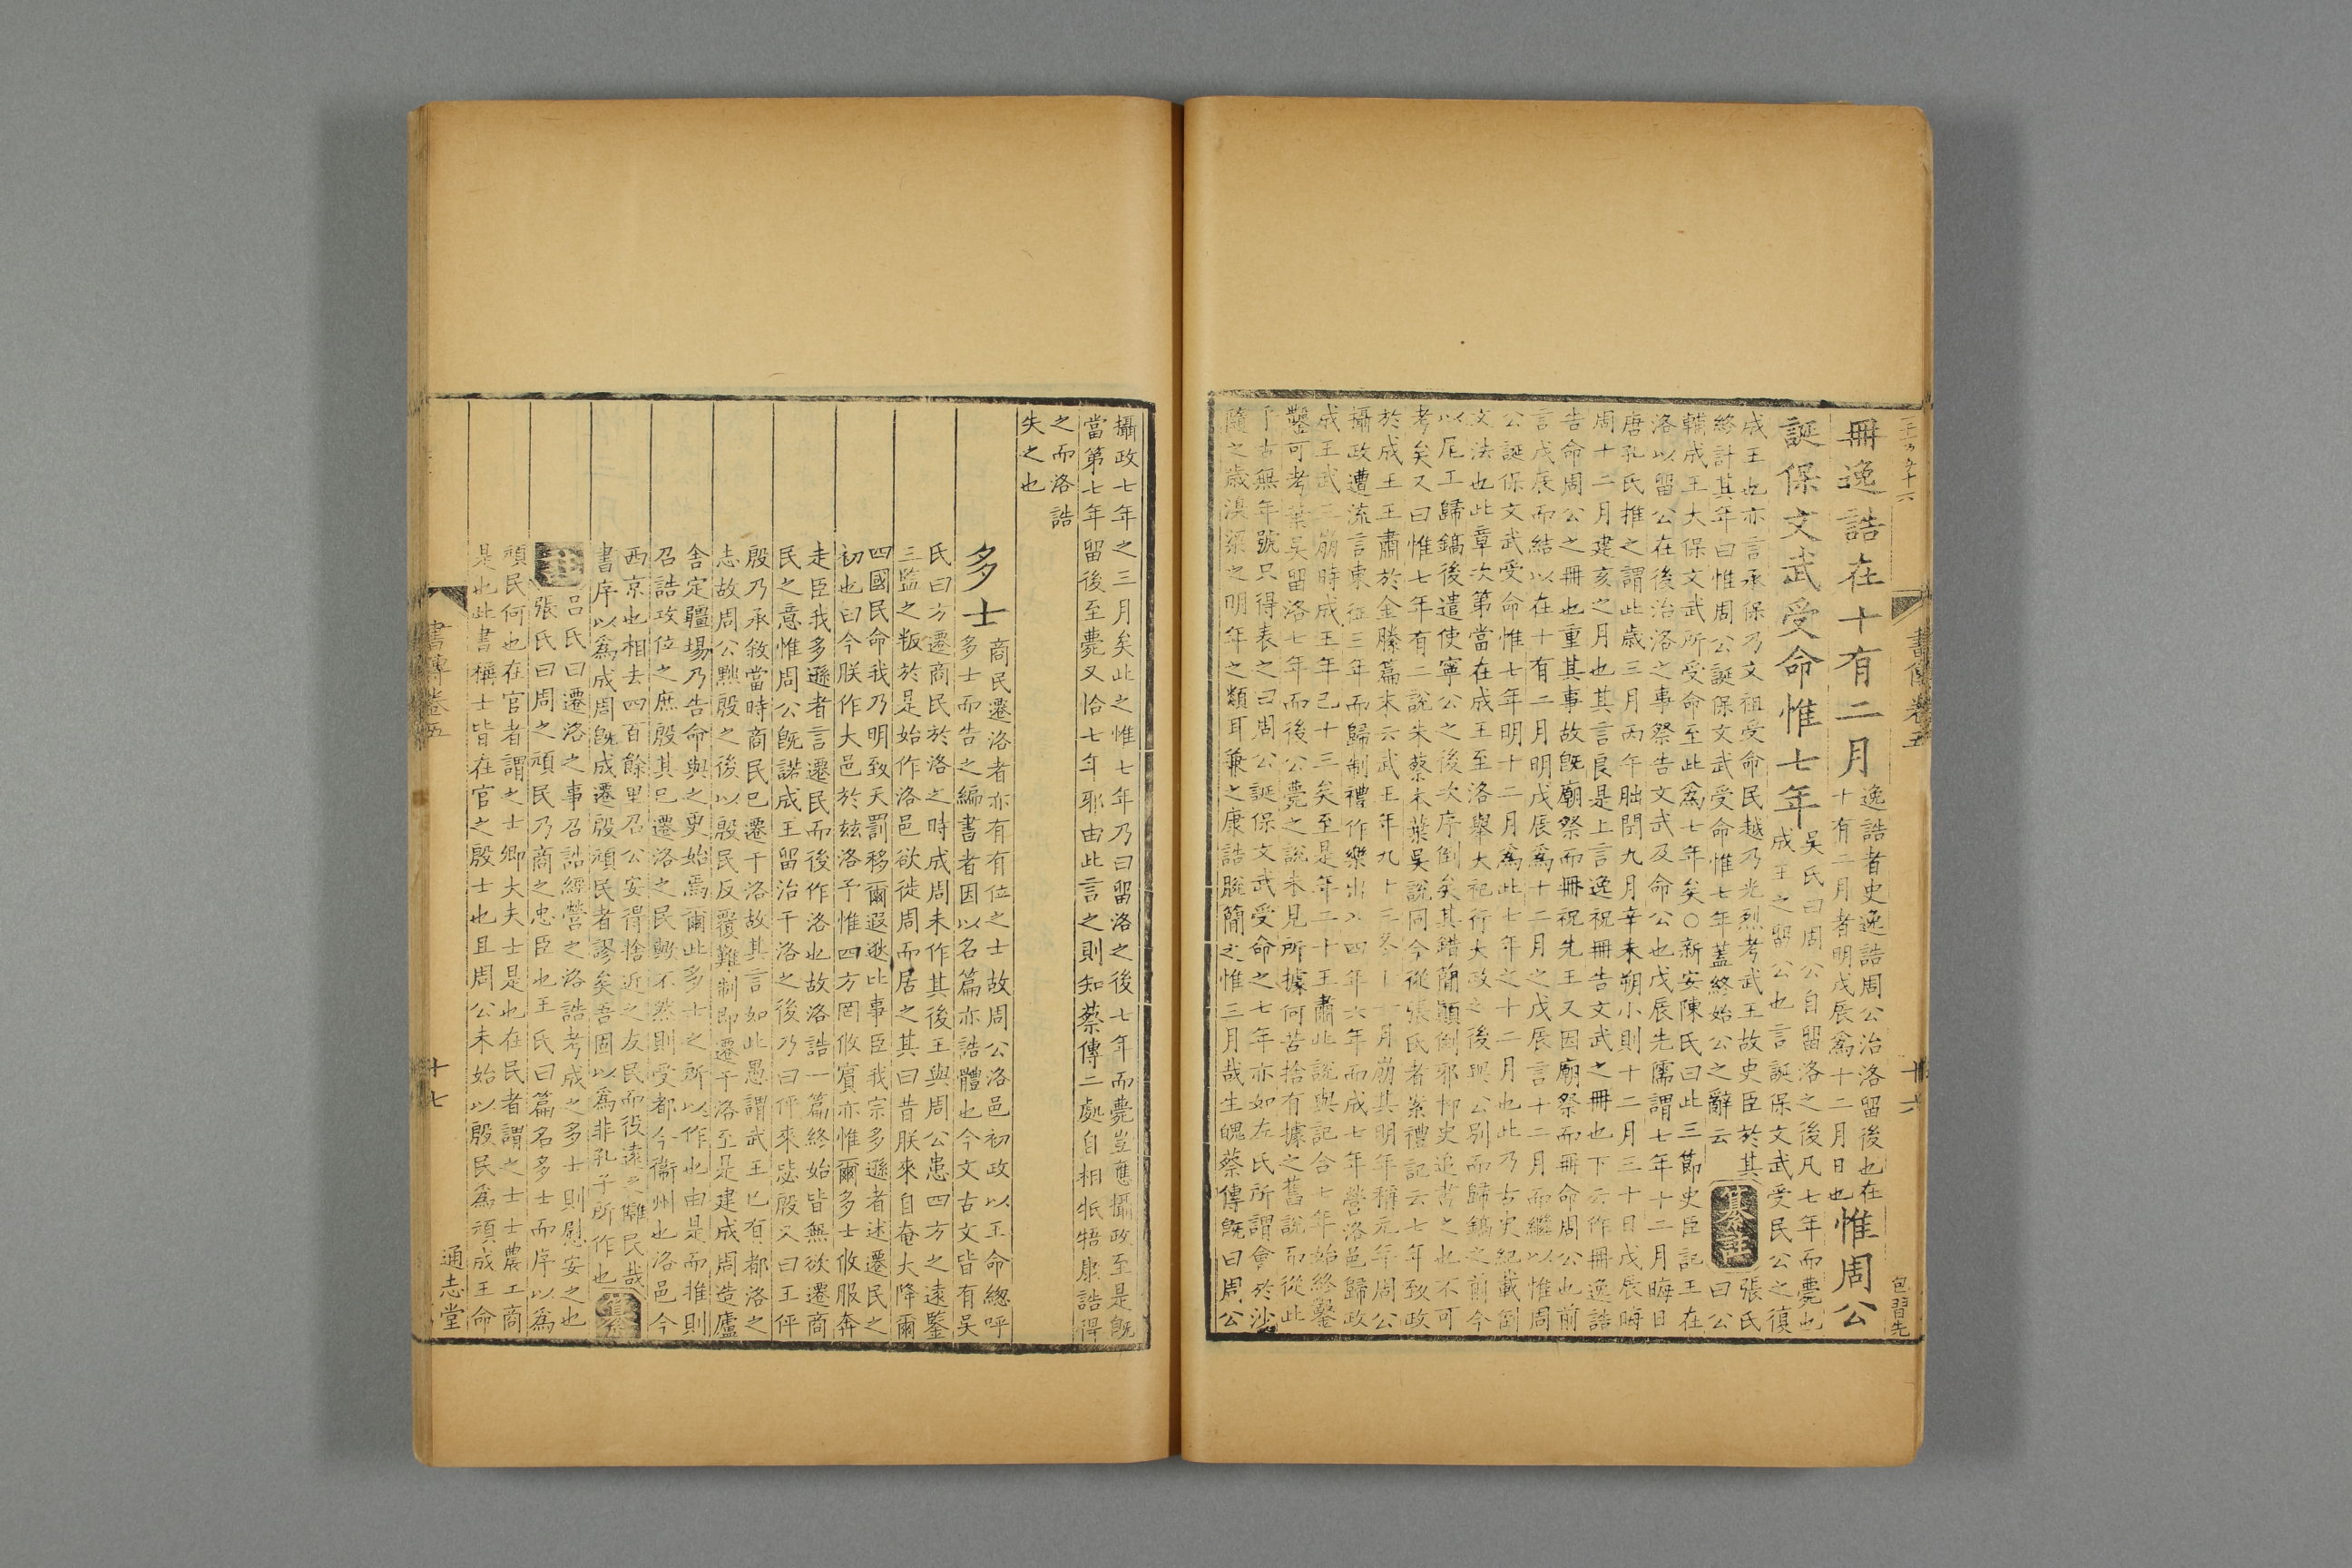 書傳卷五
十六
包習先
冊逸誥在十有二月
逸誥者史逸誥周公治洛留後也在
十有二月者明戊辰爲十二月日也
惟周公
誕保文武受命惟七年
吳氏曰周公自留洛之後凡七年而薨也
成王之留公也言誕保文武受民公之復
成王也亦言承保乃文祖受命民越乃光烈考武王故史臣於其
終計其年曰惟周公誕保文武受命惟七年蓋終始公之辭云
纂註
張氏
曰公
輔成王大保文武所受命至此爲七年矣○新安陳氏曰此三節史臣記王在
洛以留公在後治洛之事祭告文武及命公也戊辰先儒謂七年十二月晦日
唐孔氏推之謂此歲三月丙午朏閏九月辛未朔小則十二月三十日戊辰晦
周十二月建亥之月也其言良是上言逸祝冊告文武之冊也下云作冊逸誥
告命周公之冊也重其事故旣廟祭而冊祝先王又因廟祭而冊命周公也前
言戊辰而結以在十有二月明戊辰爲十二月之戊辰言十二月而繼以惟周
公誕保文武受命惟七年明十二月爲此七年之十二月也此乃古史紀載倒
文法也此章次第當在成王至洛舉大祀行大政之後與公別而歸鎬之前今
以伻工歸鎬後遣使寧公之後次序倒矣其錯簡顚倒邪抑史追書之也不可
考矣又曰惟七年有二說朱蔡本葉吳說同今從張氏者案禮記云七年致政
於成王王肅於金縢篇末云武王年九十三冬十一月崩其明年稱元年周公
攝政遭流言東征三年而歸制禮作樂出入四年六年而成七年營洛邑歸政
成王武王崩時成王年已十三矣至是年二十王肅此說與記合七年始終鑿
鑿可考葉吳留洛七年而後公薨之說未見所據何苦捨有據之舊說而從此
了古無年號只得表之曰周公誕保文武受命之七年亦如左氏所謂會於沙
隨之歲溴梁之明年之類耳兼之康誥脫簡之惟三月哉生魄蔡傳旣曰周公
攝政七年之三月矣此之惟七年乃曰留洛之後七年而薨豈應攝政至是旣
當第七年留後至薨又恰七年耶由此言之則知蔡傳二處自相牴牾康誥得
之而洛誥
失之也
多士
商民遷洛者亦有有位之士故周公洛邑初政以王命總呼
多士而告之編書者因以名篇亦誥體也今文古文皆有吳
氏曰方遷商民於洛之時成周未作其後王與周公患四方之遠鑒
三監之叛於是始作洛邑欲徙周而居之其曰昔朕來自奄大降爾
四國民命我乃明致天罰移爾遐逖比事臣我宗多遜者述遷民之
初也曰今朕作大邑於兹洛予惟四方罔攸賓亦惟爾多士攸服奔
走臣我多遜者言遷民而後作洛也故洛誥一篇終始皆無欲遷商
民之意惟周公旣諾成王留治于洛之後乃曰伻來毖殷又曰王伻
殷乃承敘當時商民已遷于洛故其言如此愚謂武王已有都洛之
志故周公黜殷之後以殷民反覆難制即遷于洛至是建成周造廬
舍定疆場乃告命與之更始焉爾此多士之所以作也由是而推則
召誥攻位之庶殷其已遷洛之民歟不然則受都今衞州也洛邑今
西京也相去四百餘里召公安得捨近之友民而役遠之讎民哉
書序以爲成周旣成遷殷頑民者謬矣吾固以爲非孔子所作也
纂
註
呂氏曰遷洛之事召誥經營之洛誥考成之多士則慰安之也
張氏曰周之頑民乃商之忠臣也王氏曰篇名多士而序以爲
頑民何也在官者謂之士卿大夫士是也在民者謂之士士農工商
是也此書稱士皆在官之殷士也且周公未始以殷民爲頑成王命
書傳卷五
十七
通志堂